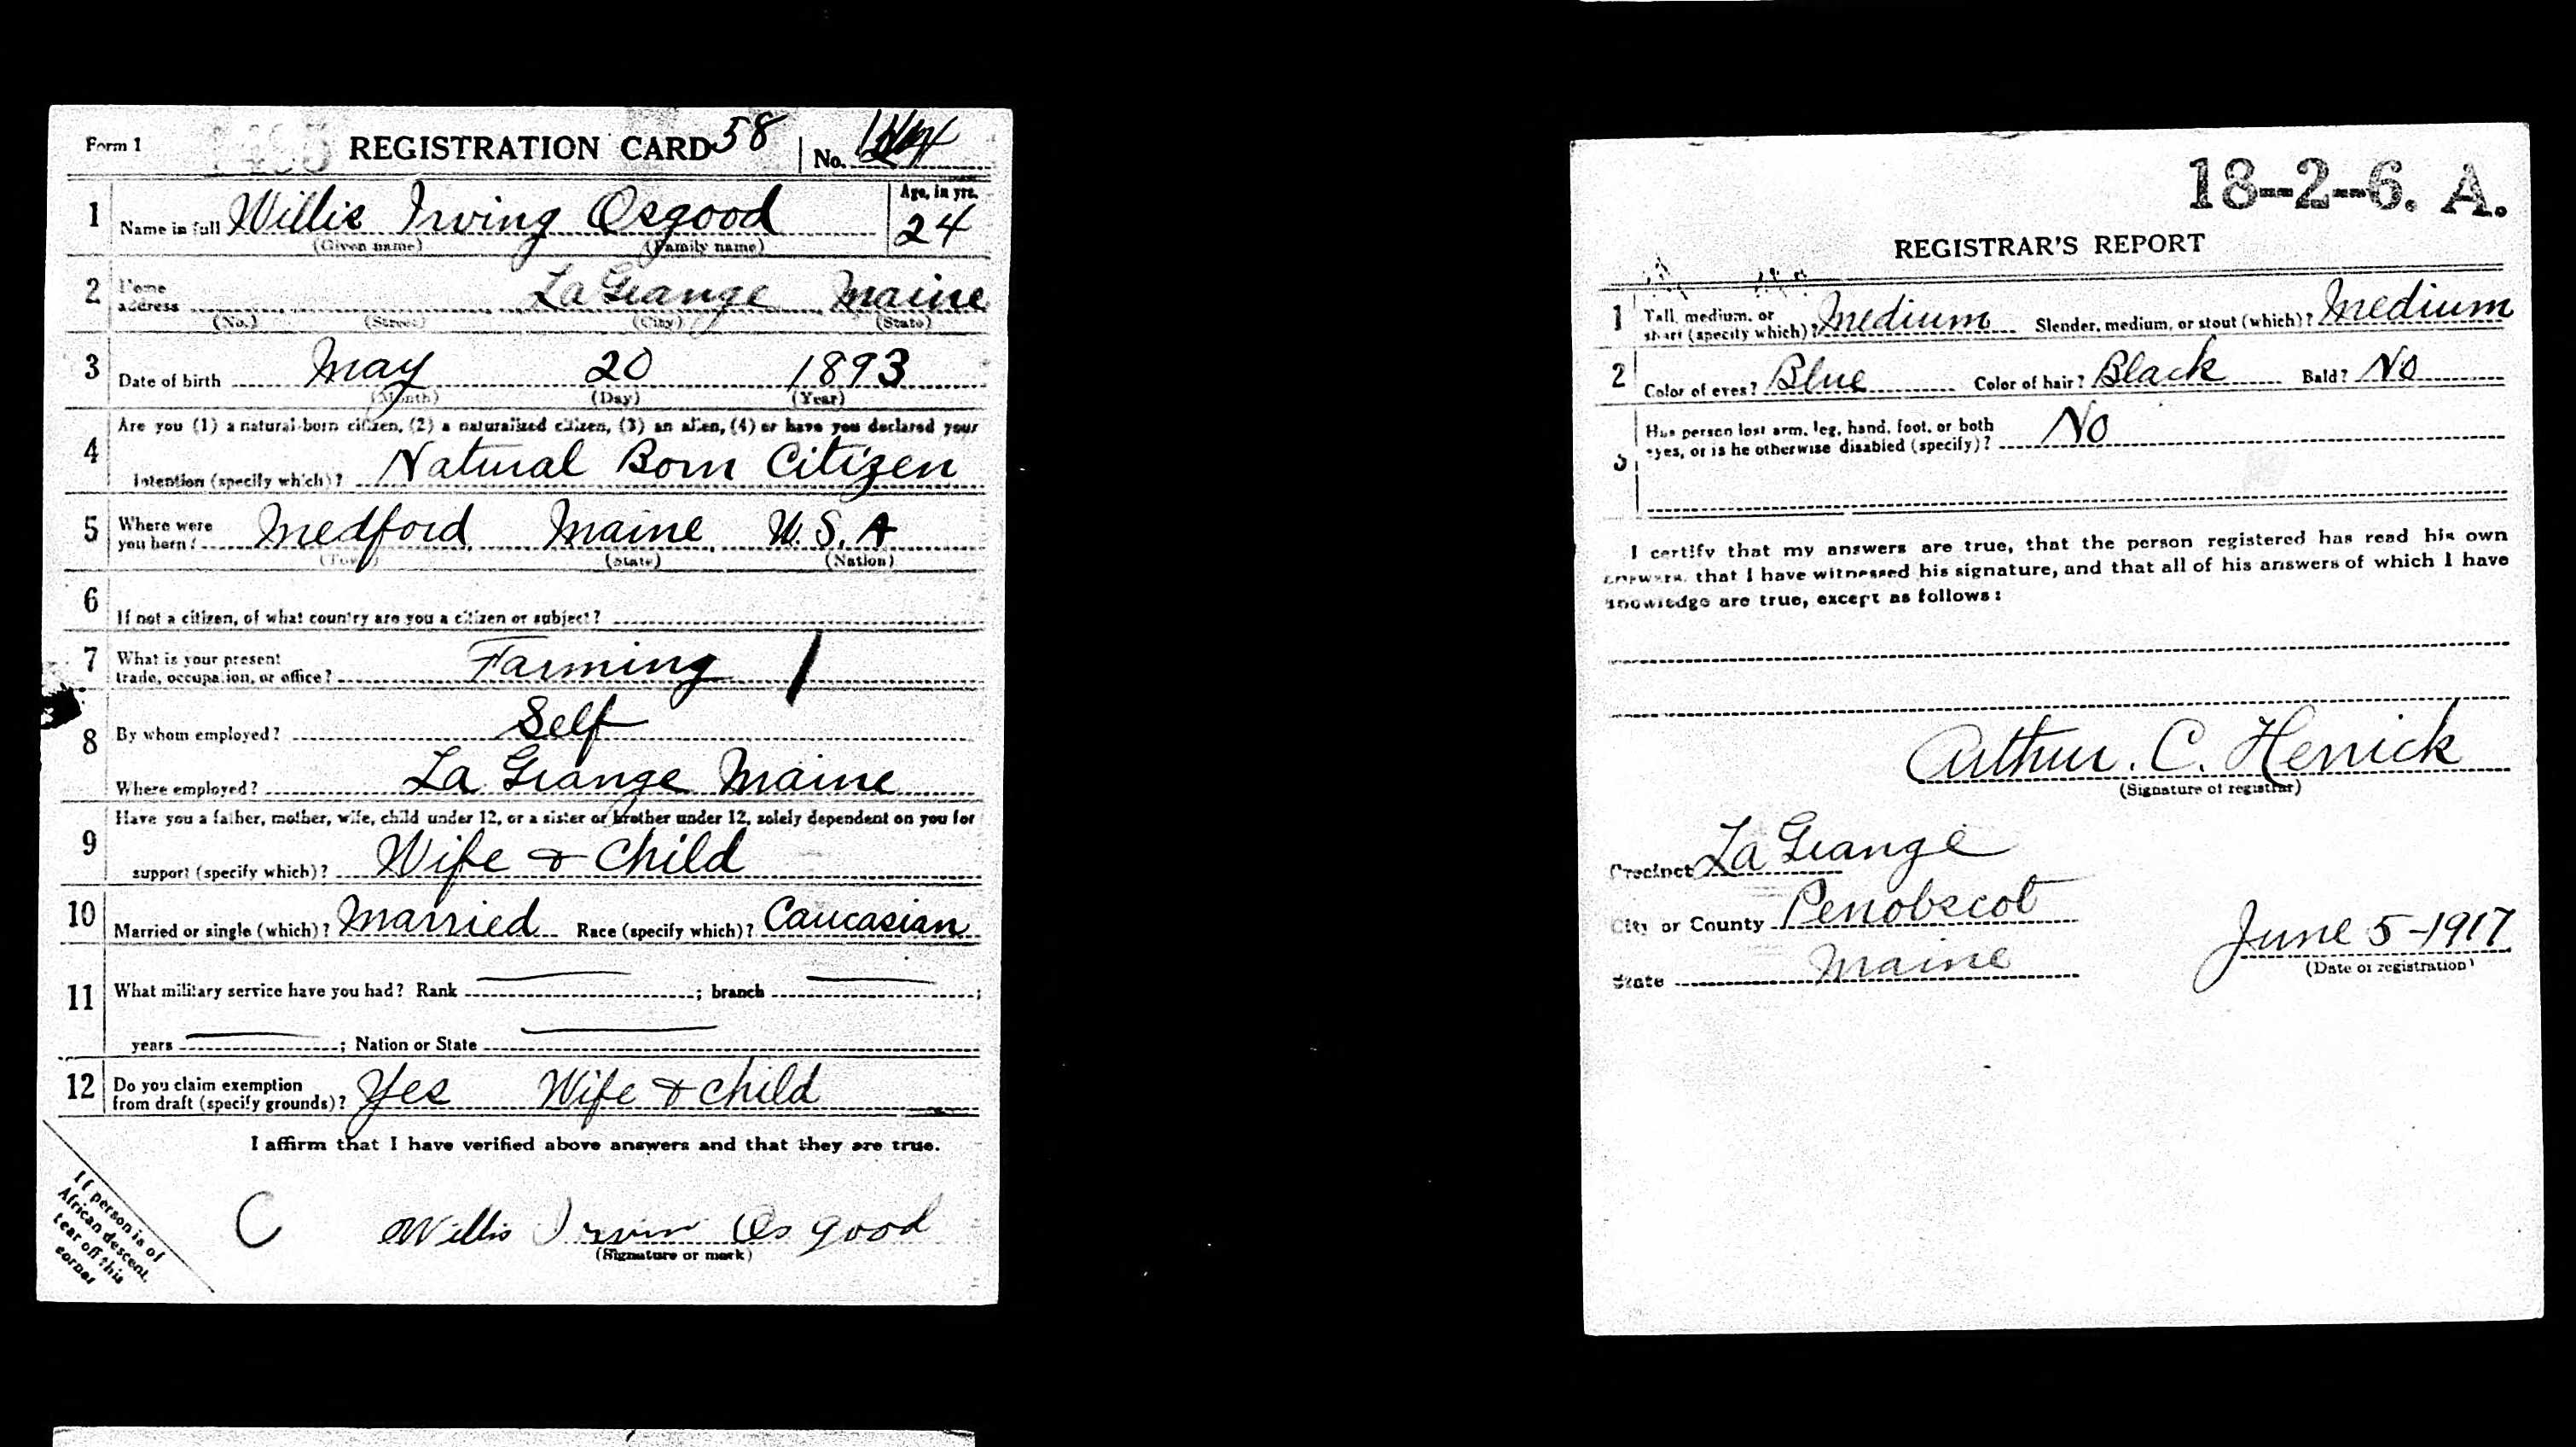 Form 1 REGISTRATION CARD 58 No.
1 Name in full Willis Irving Osgood Age, in yrs.
(Given name) (Family name) 24
2 Home address LaGrange Maine
(No.) (Street) (City) (State)
3 Date of birth May 20 1893
(Month) (Day) (Year)
Are you (1) a natural-born citizen, (2) a naturalized citizen, (3) an alien, (4) or have you declared your
4 intention (specify which)? Natural Born Citizen
5 Where were you born? Medford Maine U.S.A
(Town) (State) (Nation)
6 If not a citizen, of what country are you a citizen or subject?
7 What is your present
trade, occupation, or office? Farming
8 By whom employed? Self
Where employed? La Grange Maine
9 Have you a father, mother, wife, child under 12, or a sister or brother under 12, solely dependent on you for
support (specify which)? Wife & Child
10 Married or single (which)? Married Race (specify which)? Caucasian
11 What military service have you had? Rank ; branch ;
years ; Nation or State
12 Do you claim exemption
from draft (specify grounds)? Yes Wife & child
I affirm that I have verified above answers and that they are true.
C Willis Irvin Osgood
(Signature or mark)
If person is of
African descent,
tear off this
corner
18--2--6. A.
REGISTRAR'S REPORT
1 Tall, medium, or
short (specify which)? Medium Slender, medium, or stout (which)? Medium
2 Color of eyes? Blue Color of hair? Black Bald? No
3 Has person lost arm, leg, hand, foot, or both
eyes, or is he otherwise disabled (specify)? No
I certify that my answers are true, that the person registered has read his own
answers, that I have witnessed his signature, and that all of his answers of which I have
knowledge are true, except as follows:
Arthur. C. Herrick
(Signature of registrar)
Precinct La Grange
City or County Penobscot
State Maine
June 5-1917
(Date of registration)